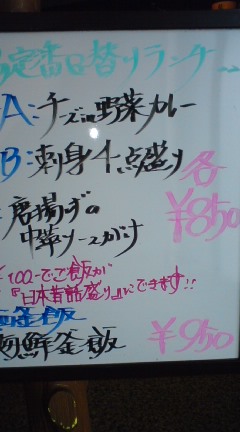 定番日替りランチ
A:チーズin野菜カレー
B:刺身4点盛り
各
唐揚げの
¥850
中華ソースがけ
¥100-でご飯が
『日本昔話盛り』にできます!!
釜飯
海鮮釜飯 ¥950